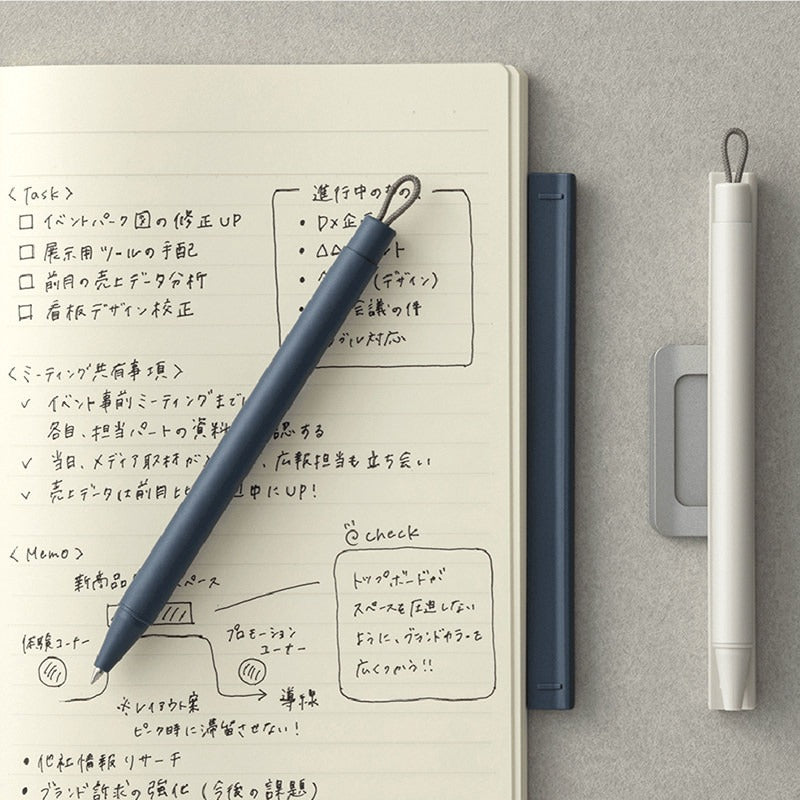 〈Task〉
□ イベントパーク図の修正UP
□ 展示用ツールの手配
□ 前月の売上データ分析
□ 看板デザイン校正
進行中のもの
・DX企
・△△ ント
・ (デザイン)
・ 会議の件
対応
〈ミーティング共有事項〉
✓ イベント事前ミーティングまでに
各自、担当パートの資料 認する
✓ 当日、メディア取材が 、広報担当も立ち会い
✓ 売上データは前月比 週中にUP!
〈Memo〉
新商品 スペース
体験コーナー
プロモーション
コーナー
※レイアウト案
導線
ピーク時に滞留させない!
check
トップボードが
スペースを圧迫しない
ように、ブランドカラーを
広くつかう!!
・他社情報リサーチ
・ブランド訴求の強化(今後の課題)